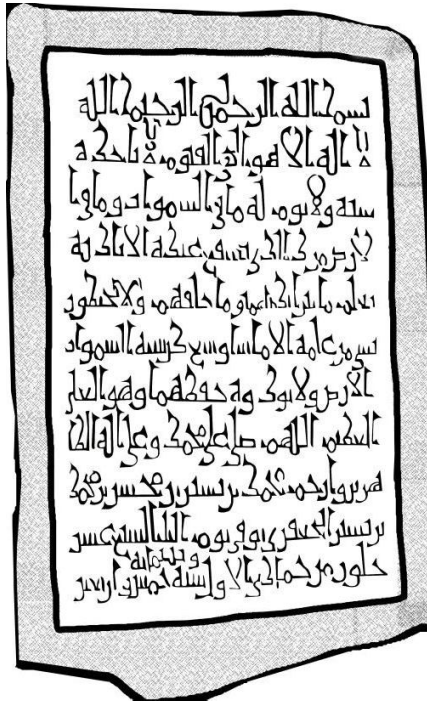 بسم الله الرحمن الرحيم الله
لا اله الا هو الحي القيوم لا تاخذه
سنة ولا نوم له ما في السموات وما في ا
لارض من ذا الذي يشفع عنده الا باذنه
يعلم ما بين ايديهم وما خلفهم ولا يحيطون
بشي من علمه الا بما شا وسع كرسيه السموات
الارض ولا يوده حفظهما وهو العلي
العظيم اللهم صل على محمد وعلى اله الطا
هرين وارحم محمد بن بن بن محمد
بن الجعفري توفي يوم عشر
خلون من الاول سنة خمس واربعين